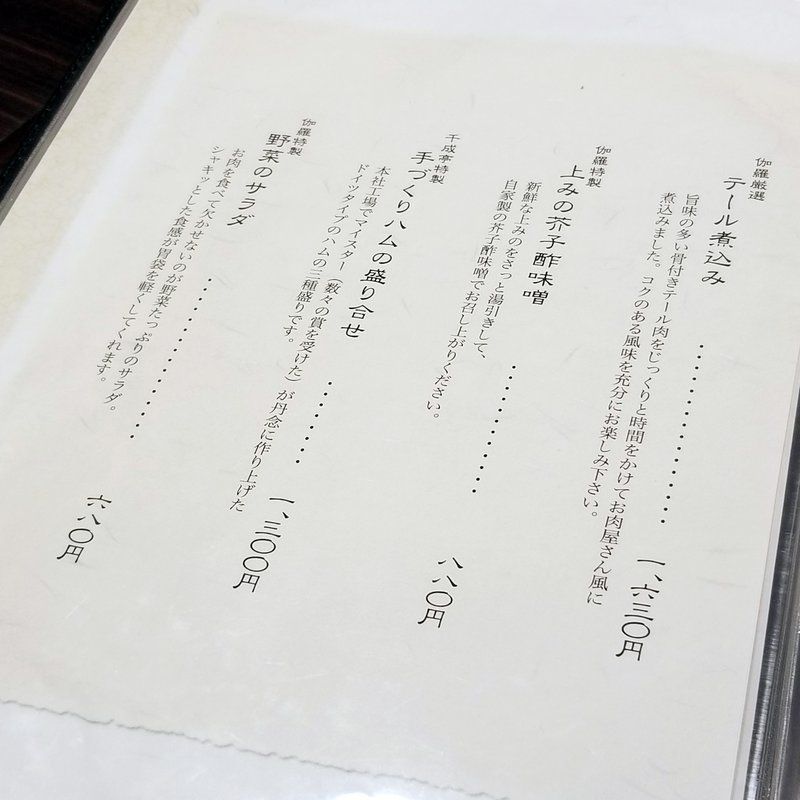 伽羅厳選
テール煮込み
‥‥‥‥‥‥‥‥ 一、六三〇円
旨味の多い骨付きテール肉をじっくりと時間をかけてお肉屋さん風に
煮込みました。コクのある風味を充分にお楽しみ下さい。
伽羅特製
上みの芥子酢味噌
‥‥‥‥‥‥ 八八〇円
新鮮な上みのをさっと湯引きして、
自家製の芥子酢味噌でお召し上がりください。
千成亭特製
手づくりハムの盛り合せ
‥‥‥‥ 一、三〇〇円
本社工場でマイスター（数々の賞を受けた）が丹念に作り上げた
ドイツタイプのハムの三種盛りです。
伽羅特製
野菜のサラダ
‥‥‥‥‥‥‥ 六八〇円
お肉を食べて欠かせないのが野菜たっぷりのサラダ。
シャキッとした食感が胃袋を軽くしてくれます。